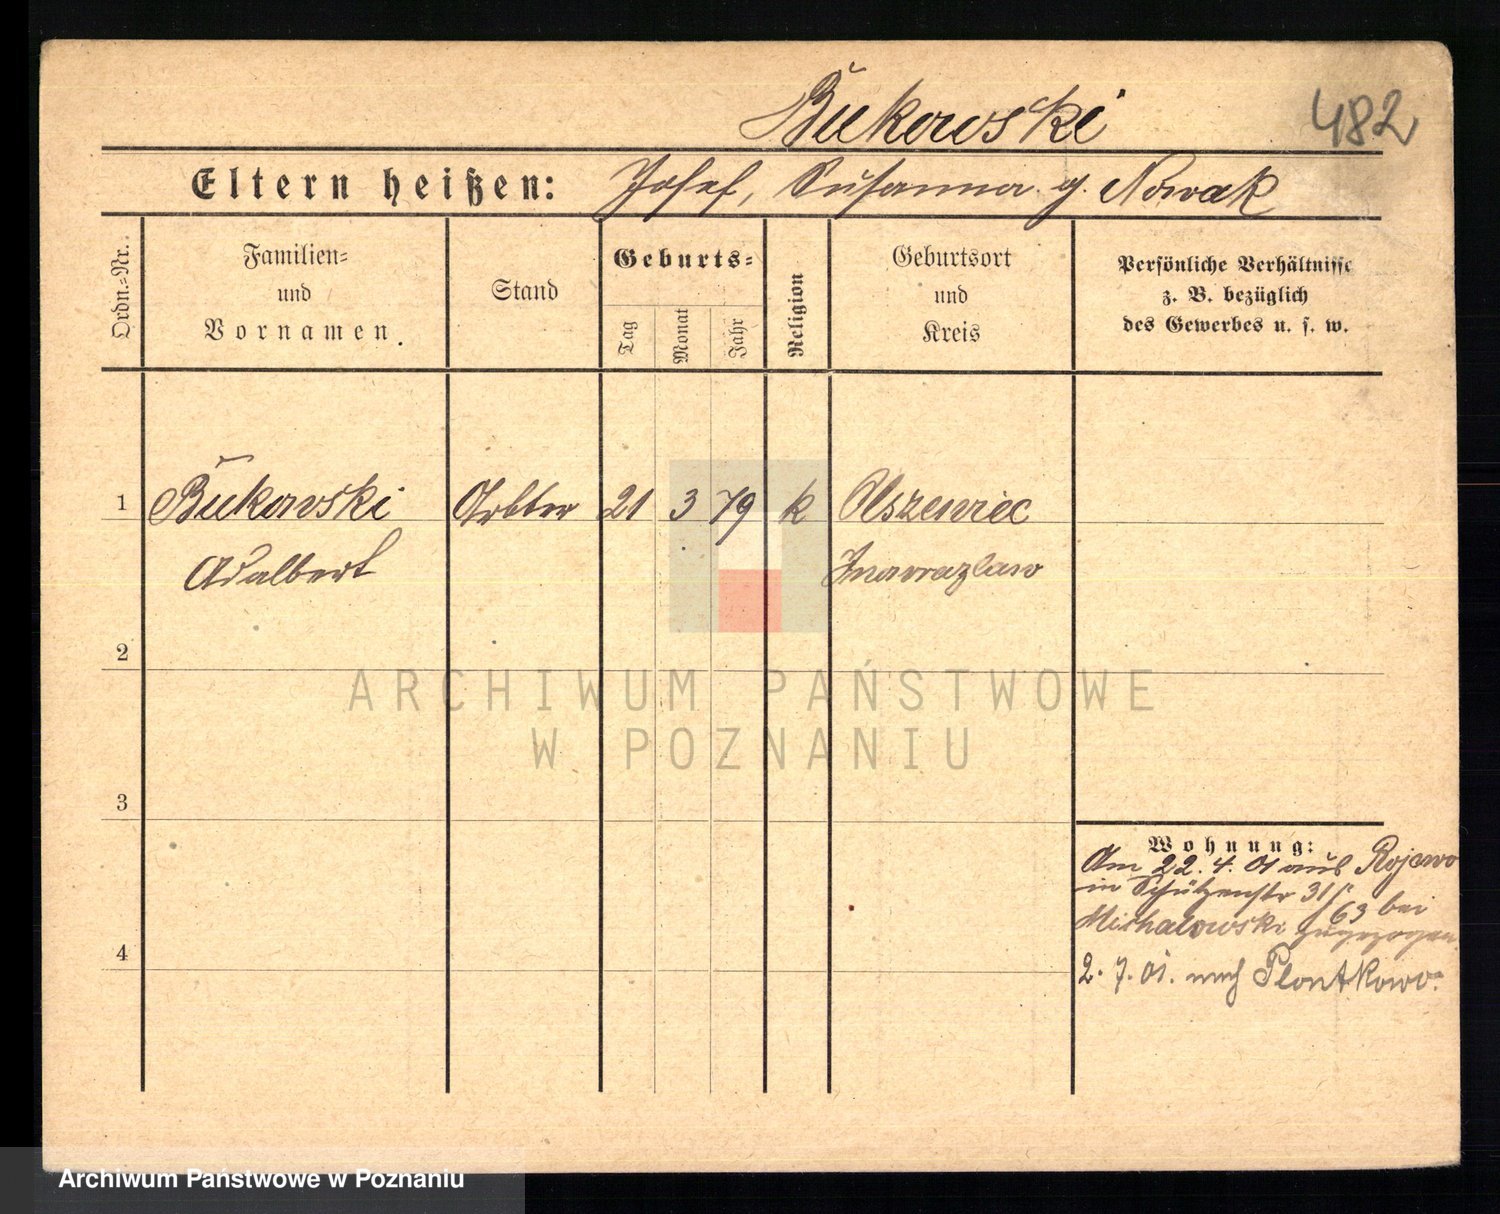 Bukowski
482
Eltern heißen: Josef, Susanna g. Nowak
Ordn.-Nr.
Familien-
und
Vornamen.
Stand
Geburts-
Tag
Monat
Jahr
Religion
Geburtsort
und
Kreis
Persönliche Verhältnisse
z. B. bezüglich
des Gewerbes u. s. w.
1 Bukowski Arbter 21 3 79 k Olszewiec
Adalbert Inowrazlaw
2
ARCHIWUM PAŃSTWOWE
W POZNANIU
3
Wohnung:
Am 22. 4. 01 aus Rojewo
in Schützenstr 31/
63 bei
Michalowski zugezogen
4
2. 7. 01. nach Plontkowo.
Archiwum Państwowe w Poznaniu